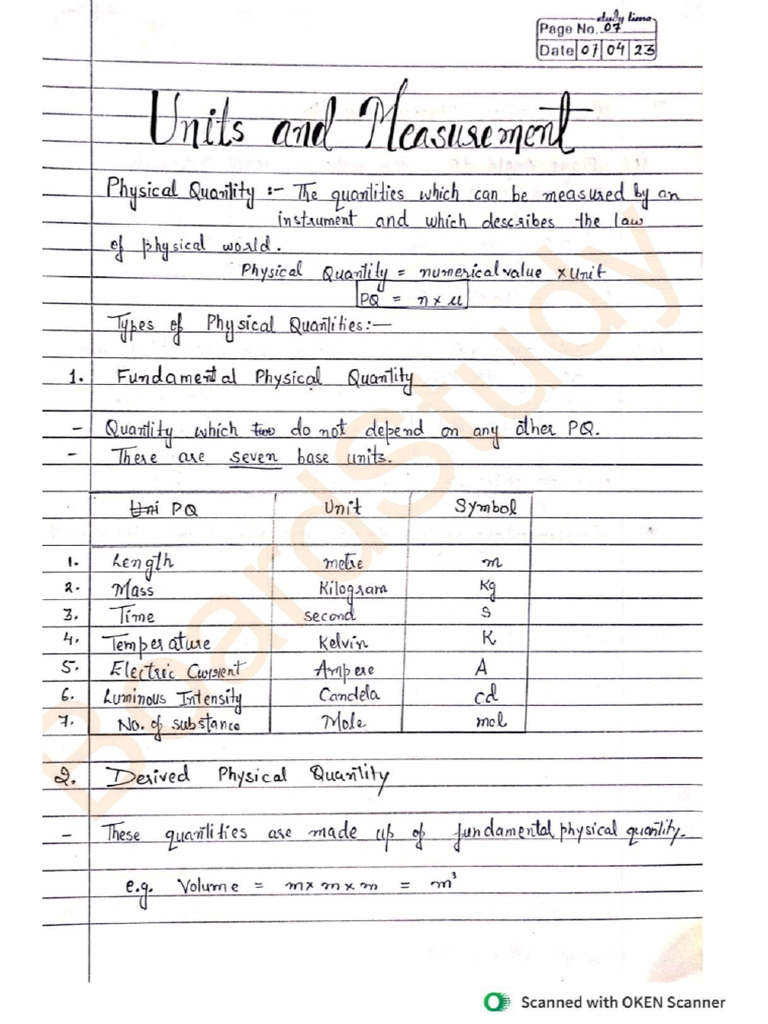 study time
Page No. 07
Date 07 04 23
Units and Measurement
Physical Quantity :- The quantities which can be measured by an
instrument and which describes the law
of physical world.
Physical Quantity = numerical value × unit
PQ = n × u
Types of Physical Quantities:—
1. Fundamental Physical Quantity
- Quantity which do not depend on any other PQ.
- There are seven base units.
PQ Unit Symbol
1. Length metre m
2. Mass Kilogram Kg
3. Time second S
4. Temperature Kelvin K
5. Electric Current Ampere A
6. Luminous Intensity Candela cd
7. No. of substance Mole mol
2. Derived Physical Quantity
- These quantities are made up of fundamental physical quantity.
e.g. Volume = m × m × m = m³
BoardStudy
Scanned with OKEN Scanner